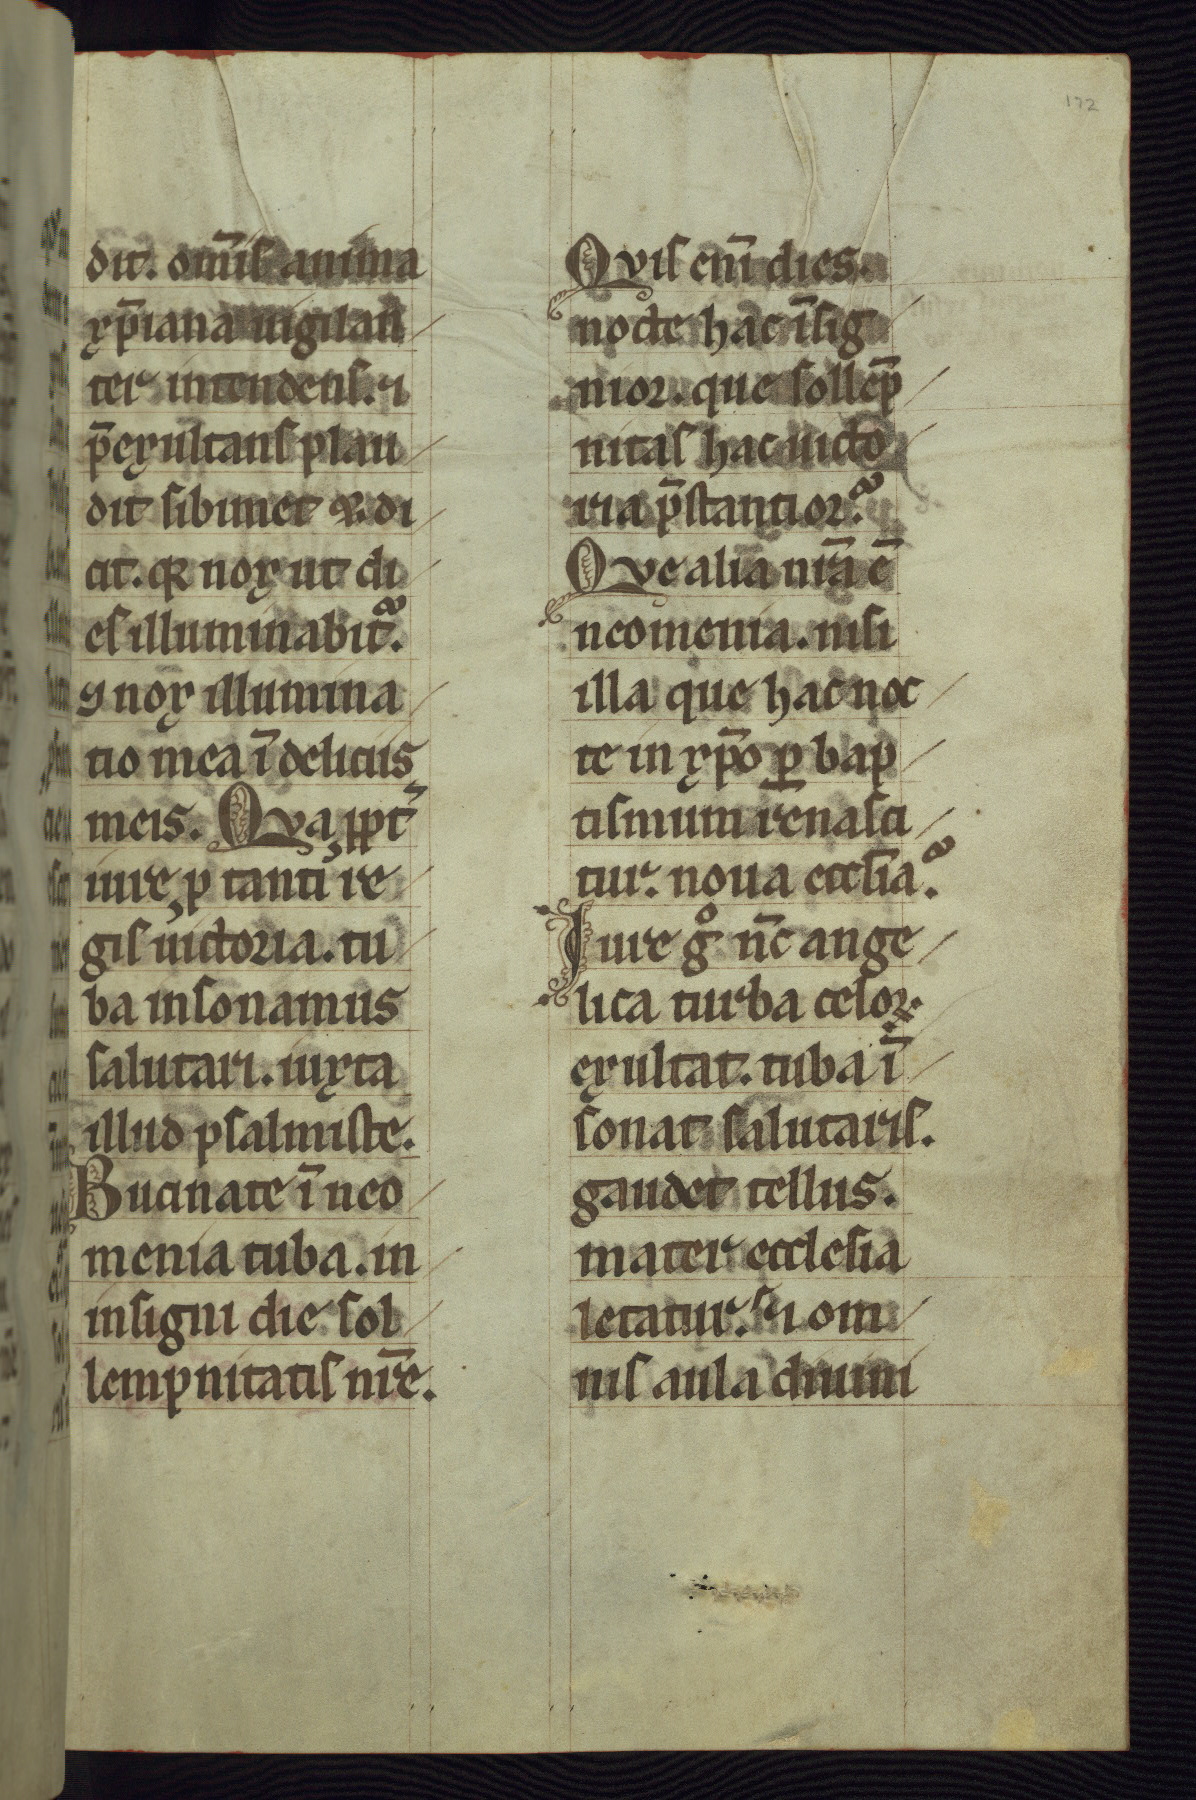 172
dit. om̄is anima
xp̄iana uigilan
ter intendens. ⁊
p̄exultans plau
dit sibimet ⁊. di
cit. q̄ nox ut di
es illuminabit̄.
⁊ nox illumina
tio mea ī deliciis
meis. Qva ꝓpt̄
iure p tanti re
gis uictoria. tu
ba insonamus
salutari. iuxta
illud psalmiste.
Bucinate ī neo
menia tuba. in
insigni die sol
lempnitatis nr̄e.
Qvis eni̅ dies.
nocte hac īsig
nior. que sollēp
nitas hac uicto
ria p̄stantior.
Qve alia nr̄a ē
neomenia. nisi
illa que hac noc
te in xp̄o ꝑ bap
tismum renasci
tur. noua eccl̄ia.
Iure gͦ nc̄ ange
lica turba celoꝝ
exultat. tuba ī
sonat salutaris.
gaudet tellus.
mater ecclesia
letatur. ⁊ om
nis aula diuini